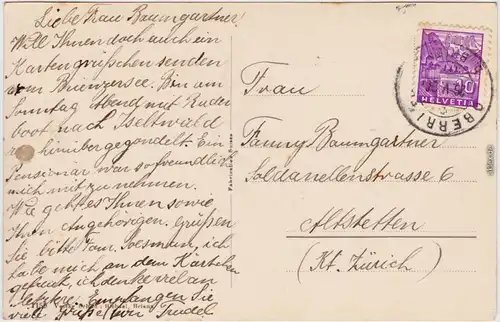 Liebe Frau Baumgartner!
Will Ihnen doch auch ein
Kartengrüsschen senden
vom Brienzersee. Bin am
Sonntag Abend mit Ruder
boot nach Iseltwald
hinübergegondelt. Ein
Pensionär war so freundlich
mich mit zu nehmen.
Wie geht es Ihnen sowie
Ihren Angehörigen. Grüßen
Sie bitte Fam. ich
habe mich an dem Kärtchen
gefreut, ich denke viel an
Empfangen Sie
viele Grüße von Trudel
Frau
Fanny Baumgartner
Soldanellenstrasse 6
Altstetten
(Kt. Zürich)
HELVETIA
OBERRIED